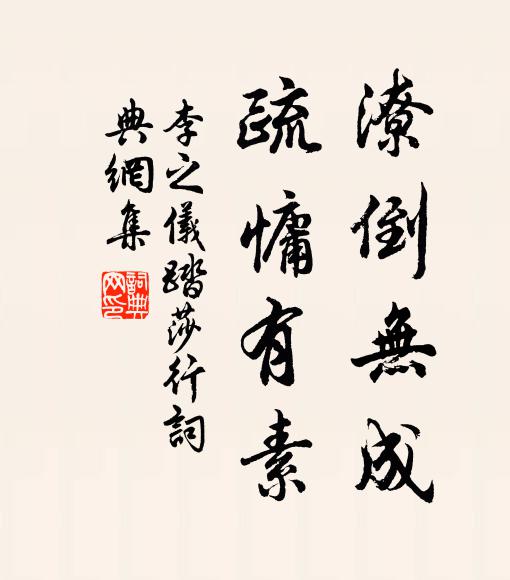 潦倒無成
疏慵有素
李之儀踏莎行詞
典網集
詞典
网印